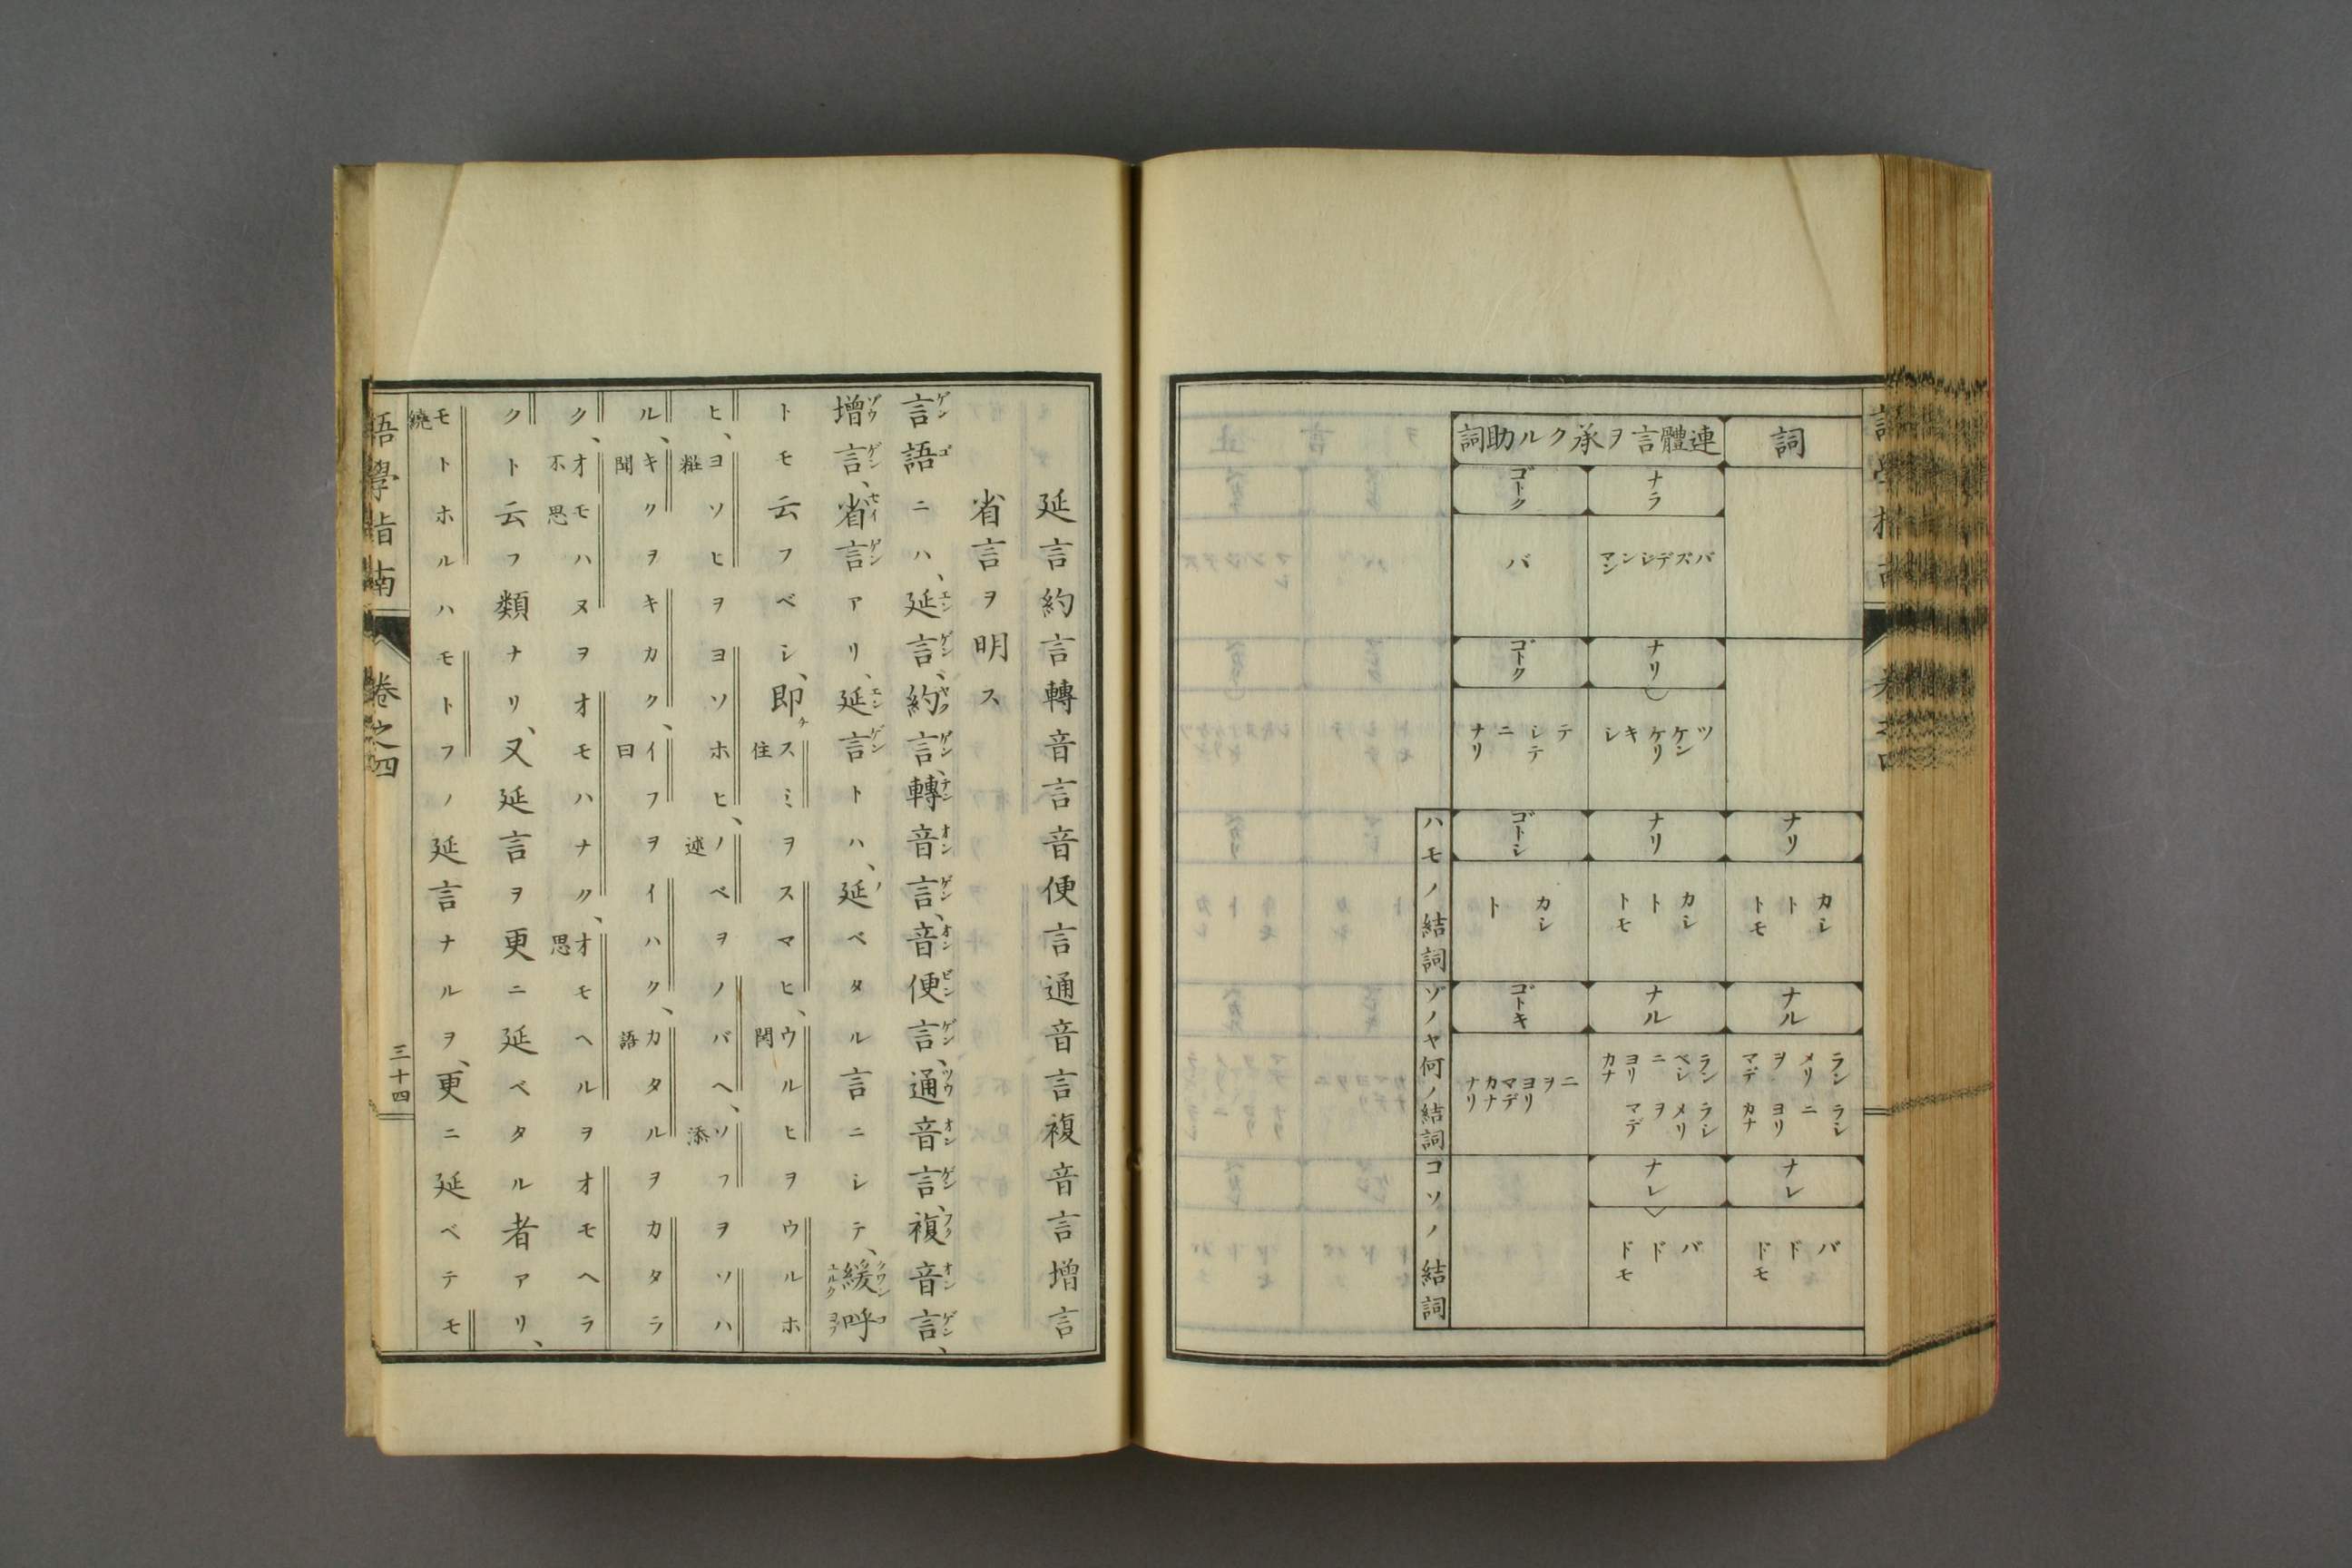 詞
連體言ヲ承クル助詞
ナラ
ゴトク
バズデジンマシ
バ
ナリ
ゴトク
ツケンケリキシ
テシテニナリ
ナリ
ナリ
ゴトシ
カシトトモ
カシトトモ
カシト
ナル
ナル
ゴトキ
ランラシメリニヲヨリマデカナ
ランラシベシメリニヲヨリマデカナ
ニヲヨリマデカナナリ
ナレ
ナレ
バドドモ
バドドモ
ハモノ結詞
ゾノヤ何ノ結詞
コソノ結詞
延言約言轉音言音便言通音言複音言增言
省言ヲ明ス
言語ニハ、延言、約言、轉音言、音便言、通音言、複音言、
增言、省言アリ、延言トハ、延ベタル言ニシテ、緩呼
トモ云フベシ、即チスミヲスマヒ、ウルヒヲウルホ
ヒ、ヨソヒヲヨソホヒ、ノベヲノバヘ、ソフヲソハ
ル、キクヲキカク、イフヲイハク、カタルヲカタラ
ク、オモハヌヲオモハナク、オモヘルヲオモヘラ
クト云フ類ナリ、又延言ヲ更ニ延ベタル者アリ、
モトホルハモトフノ延言ナルヲ、更ニ延ベテモ
語學指南
卷之四
三十四